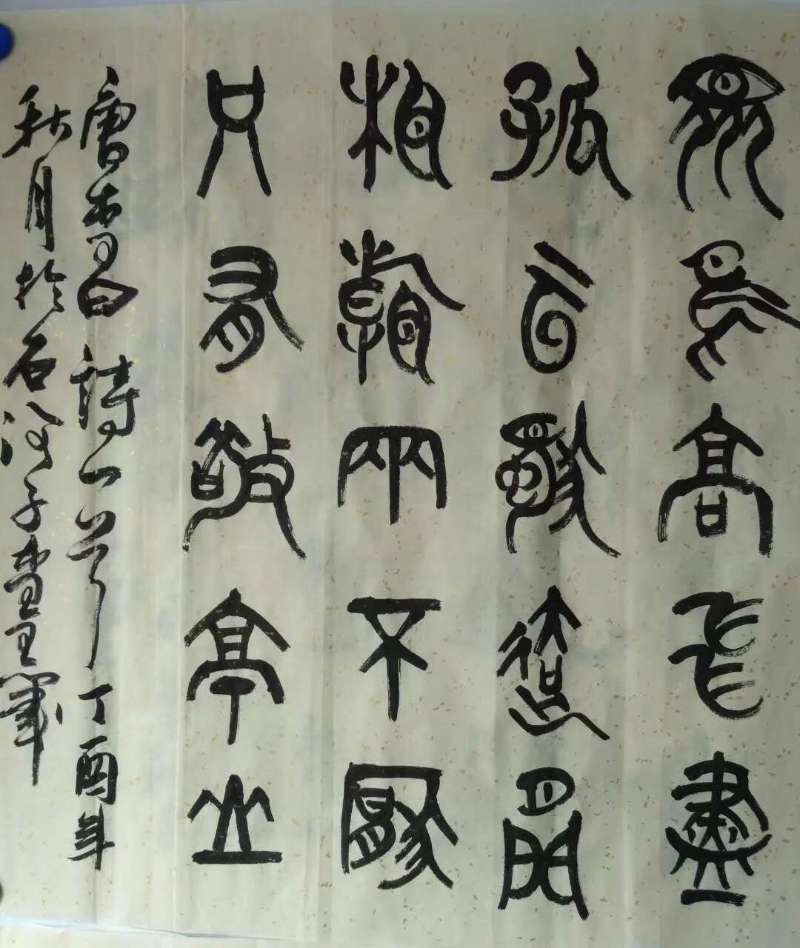 眾鳥高飛盡
孤雲獨去閒
相看兩不厭
只有敬亭山
唐李白詩一首丁酉年
秋月於石